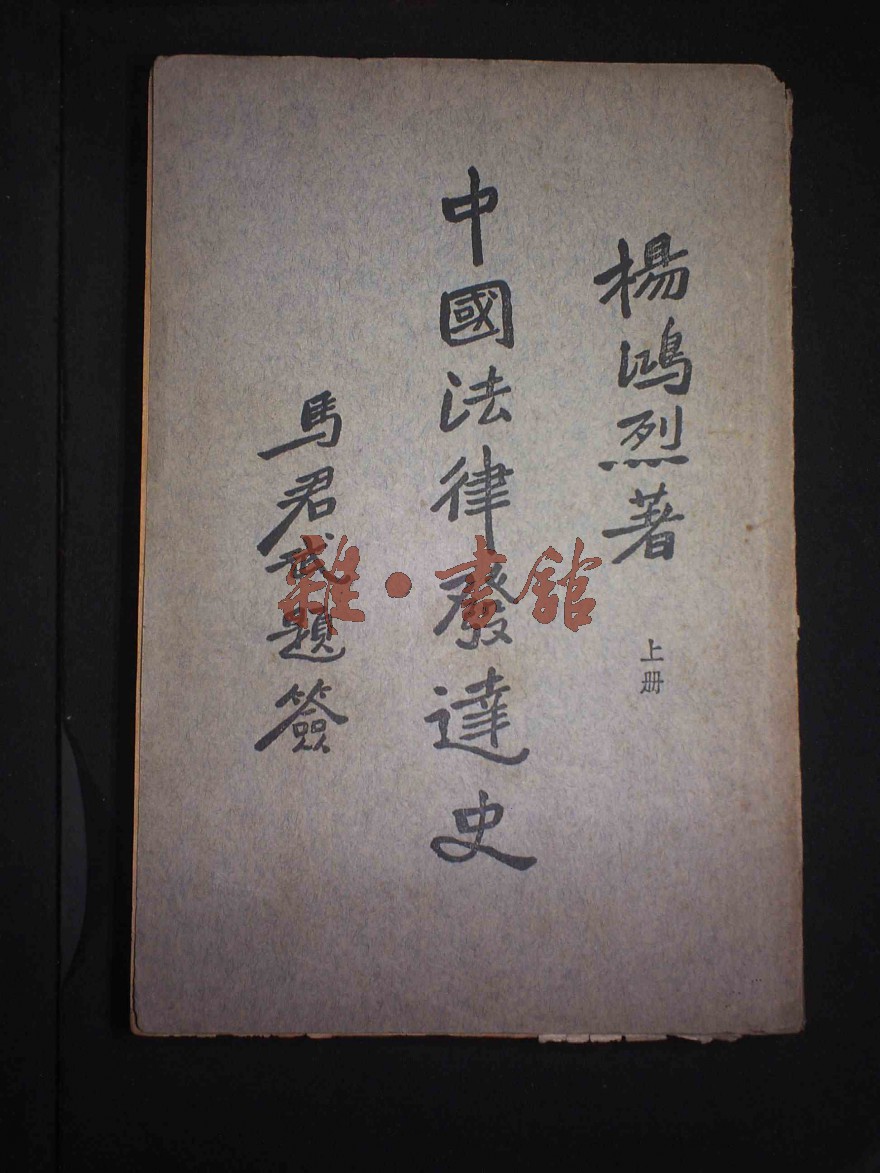 楊鴻烈著
上册
中國法律發達史
馬君武題簽
雜·書館